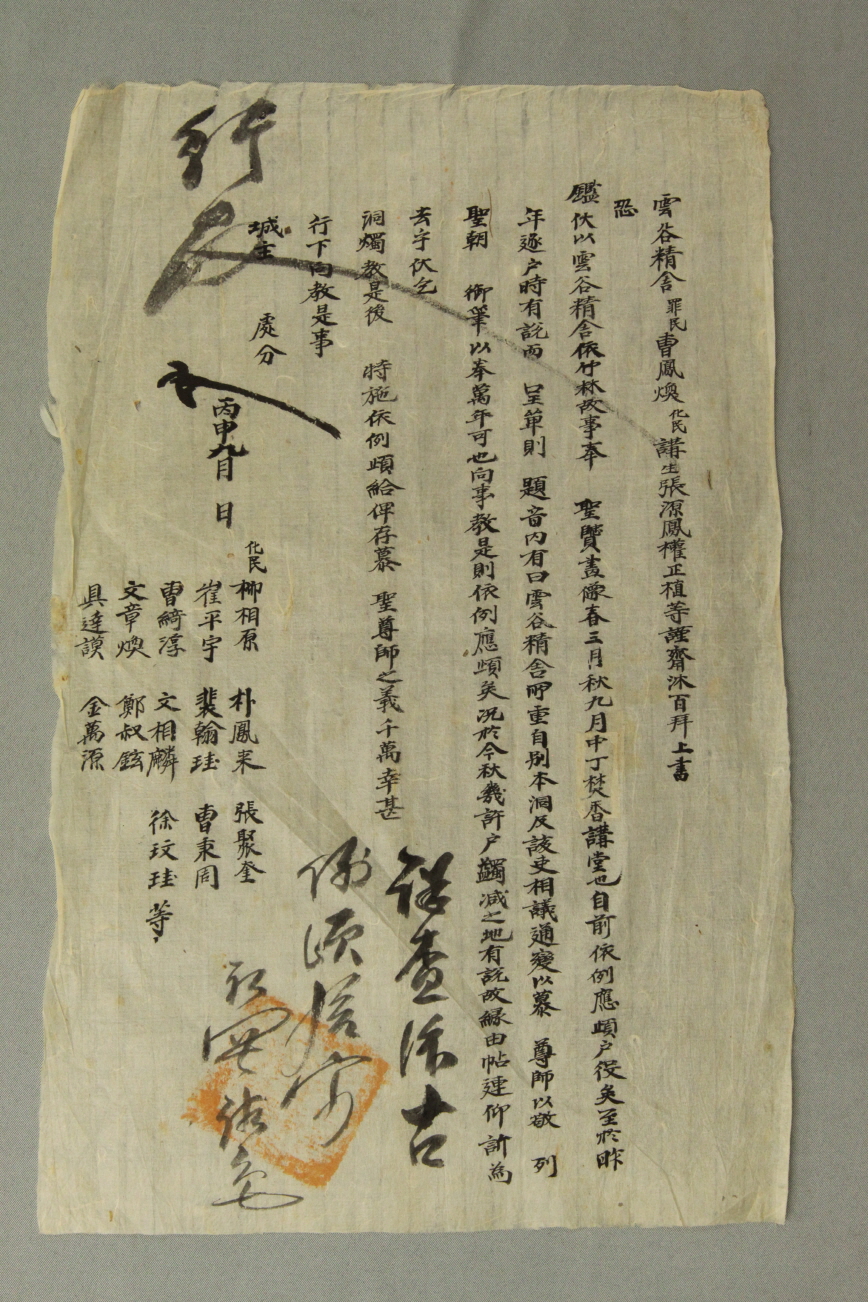 雲谷精舍罪民曺鳳煥化民講生張源鳳權正植等謹齋沐百拜上書
恐
鑑伏以雲谷精舍依竹林故事奉 聖賢畵像春三月秋九月中丁焚香講堂也自前依例應頉戶役矣至於昨
年逐戶時有說而 呈單則 題音內有曰雲谷精舍所重自別本洞及該吏相議通變以慕 尊師以敬 列
聖朝 御筆以奉萬年可也向事敎是則依例應頉矣況於今秋幾許戶蠲减之地有說故緣由帖連仰訴爲
去乎伏乞
洞燭敎是後 特施依例頉給俾存慕 聖尊師之義千萬幸甚
行下向敎是事
城主 處分
丙申九月 日
化民 柳相原 朴鳳来 張聚奎
崔平宇 裴翰珪 曺秉周
曺綺淳 文相麟 徐玟珪 等
文章煥 鄭叔鉉
具達謨 金萬源
詳査依古
例頉給宜